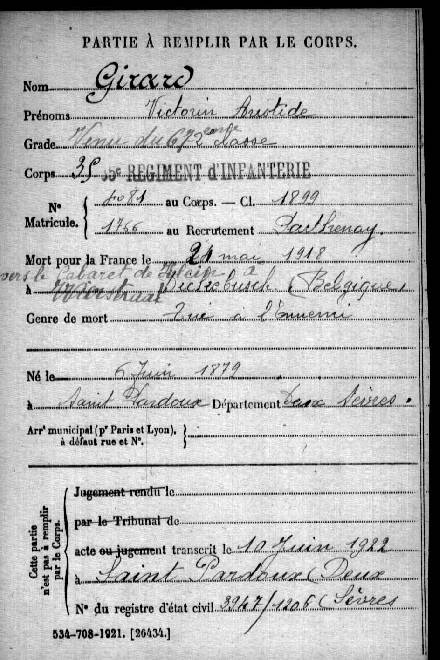 PARTIE À REMPLIR PAR LE CORPS.
Nom Girard
Prénoms Victorin Aristide
Grade Venu du 67 2e classe
Corps 35 35e REGIMENT d'INFANTERIE
N° Matricule. { au Corps. — Cl. 1899
1766 au Recrutement Parthenay.
Mort pour la France le 21 mai 1918
vers le Cabaret de à
à Dickebusch (Belgique)
Genre de mort Tué à l'Ennemi
Né le 6 Juin 1879
à Saint Pardoux Département Deux Sèvres.
Arrt municipal (pr Paris et Lyon),
à défaut rue et N°.
Cette partie n'est pas à remplir par le Corps.
Jugement rendu le
par le Tribunal de
acte ou jugement transcrit le 10 Juin 1922
à Saint Pardoux (Deux
N° du registre d'état civil 3947/1206 Sèvres)
534-708-1921. [26434.]